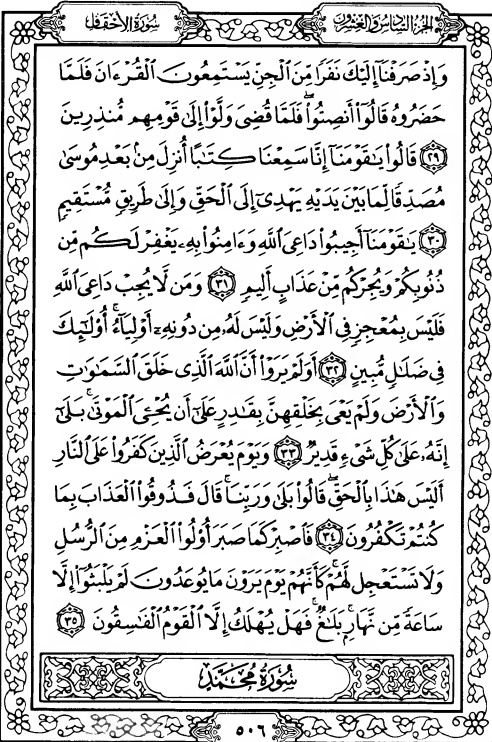 الجزء السادس والعشرون
سورة الأحقاف
وَإِذْ صَرَفْنَآ إِلَيْكَ نَفَرًا مِّنَ ٱلْجِنِّ يَسْتَمِعُونَ ٱلْقُرْءَانَ فَلَمَّا
حَضَرُوهُ قَالُوٓا۟ أَنصِتُوا۟ ۖ فَلَمَّا قُضِىَ وَلَّوْا۟ إِلَىٰ قَوْمِهِم مُّنذِرِينَ
٢٩ قَالُوا۟ يَٰقَوْمَنَآ إِنَّا سَمِعْنَا كِتَٰبًا أُنزِلَ مِنۢ بَعْدِ مُوسَىٰ
مُصَدِّقًا لِّمَا بَيْنَ يَدَيْهِ يَهْدِىٓ إِلَى ٱلْحَقِّ وَإِلَىٰ طَرِيقٍ مُّسْتَقِيمٍ
٣٠ يَٰقَوْمَنَآ أَجِيبُوا۟ دَاعِىَ ٱللَّهِ وَءَامِنُوا۟ بِهِۦ يَغْفِرْ لَكُم مِّن
ذُنُوبِكُمْ وَيُجِرْكُم مِّنْ عَذَابٍ أَلِيمٍ ٣١ وَمَن لَّا يُجِبْ دَاعِىَ ٱللَّهِ
فَلَيْسَ بِمُعْجِزٍ فِى ٱلْأَرْضِ وَلَيْسَ لَهُۥ مِن دُونِهِۦٓ أَوْلِيَآءُ ۚ أُو۟لَٰٓئِكَ
فِى ضَلَٰلٍ مُّبِينٍ ٣٢ أَوَلَمْ يَرَوْا۟ أَنَّ ٱللَّهَ ٱلَّذِى خَلَقَ ٱلسَّمَٰوَٰتِ
وَٱلْأَرْضَ وَلَمْ يَعْىَ بِخَلْقِهِنَّ بِقَٰدِرٍ عَلَىٰٓ أَن يُحْۦِىَ ٱلْمَوْتَىٰ ۚ بَلَىٰٓ
إِنَّهُۥ عَلَىٰ كُلِّ شَىْءٍ قَدِيرٌ ٣٣ وَيَوْمَ يُعْرَضُ ٱلَّذِينَ كَفَرُوا۟ عَلَى ٱلنَّارِ
أَلَيْسَ هَٰذَا بِٱلْحَقِّ ۖ قَالُوا۟ بَلَىٰ وَرَبِّنَا ۚ قَالَ فَذُوقُوا۟ ٱلْعَذَابَ بِمَا
كُنتُمْ تَكْفُرُونَ ٣٤ فَٱصْبِرْ كَمَا صَبَرَ أُو۟لُوا۟ ٱلْعَزْمِ مِنَ ٱلرُّسُلِ
وَلَا تَسْتَعْجِل لَّهُمْ ۚ كَأَنَّهُمْ يَوْمَ يَرَوْنَ مَا يُوعَدُونَ لَمْ يَلْبَثُوٓا۟ إِلَّا
سَاعَةً مِّن نَّهَارٍۭ ۚ بَلَٰغٌ ۚ فَهَلْ يُهْلَكُ إِلَّا ٱلْقَوْمُ ٱلْفَٰسِقُونَ ٣٥
سُورَةُ مُحَمَّدٍ
٥٠٦